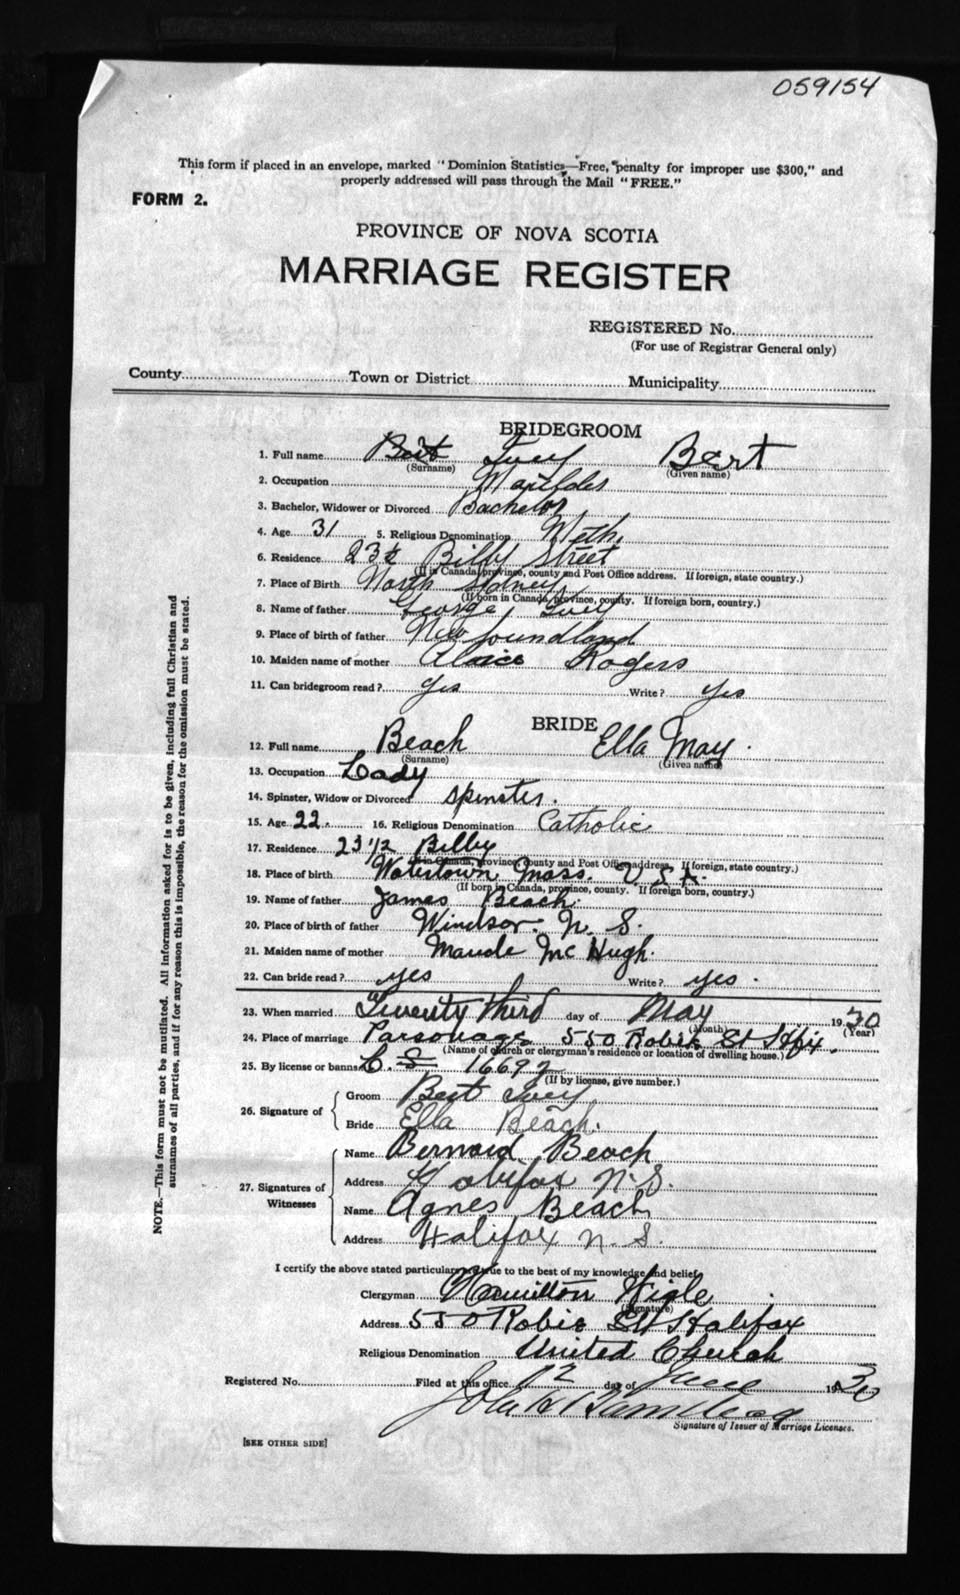 059154
This form if placed in an envelope, marked "Dominion Statistics—Free, penalty for improper use $300," and
properly addressed will pass through the Mail "FREE."
FORM 2.
PROVINCE OF NOVA SCOTIA
MARRIAGE REGISTER
REGISTERED No.
(For use of Registrar General only)
County Town or District Municipality
BRIDEGROOM
1. Full name Ivey Bert
(Surname) (Given name)
2. Occupation
3. Bachelor, Widower or Divorced Bachelor
4. Age 31 5. Religious Denomination Meth.
6. Residence 23½ Bilby Street
(If in Canada, province, county and Post Office address. If foreign, state country.)
7. Place of Birth North Sidney
(If born in Canada, province, county. If foreign born, country.)
8. Name of father George Ivey
9. Place of birth of father Newfoundland
10. Maiden name of mother Rogers
11. Can bridegroom read? yes Write? yes
BRIDE
12. Full name Beach Ella May.
(Surname) (Given name)
13. Occupation Lady
14. Spinster, Widow or Divorced Spinster.
15. Age 22. 16. Religious Denomination Catholic
17. Residence 23 1/2 Bilby
(If in Canada, province, county and Post Office address. If foreign, state country.)
18. Place of birth Watertown Mass. U.S.A.
(If born in Canada, province, county. If foreign born, country.)
19. Name of father James Beach.
20. Place of birth of father Windsor. N. S.
21. Maiden name of mother Maude McHugh.
22. Can bride read? yes Write? yes.
23. When married Twenty third day of May 1930
(Month) (Year)
24. Place of marriage Parsonage 550 Robie St Hfx.
(Name of church or clergyman's residence or location of dwelling house.)
25. By license or banns 16692
(If by license, give number.)
26. Signature of
Groom Bert Ivey
Bride Ella Beach.
27. Signatures of Witnesses
Name Bernard Beach
Address Halifax N.S.
Name Agnes Beach
Address Halifax N. S.
I certify the above stated particulars are true to the best of my knowledge and belief.
Clergyman Hamilton Wigle
(Signature)
Address 550 Robie St Halifax
Religious Denomination United Church
Registered No. Filed at this office 12 day of June 1930
Signature of Issuer of Marriage Licenses.
[SEE OTHER SIDE]
NOTE.—This form must not be mutilated. All information asked for is to be given, including full Christian and
surnames of all parties, and if for any reason this is impossible, the reason for the omission must be stated.